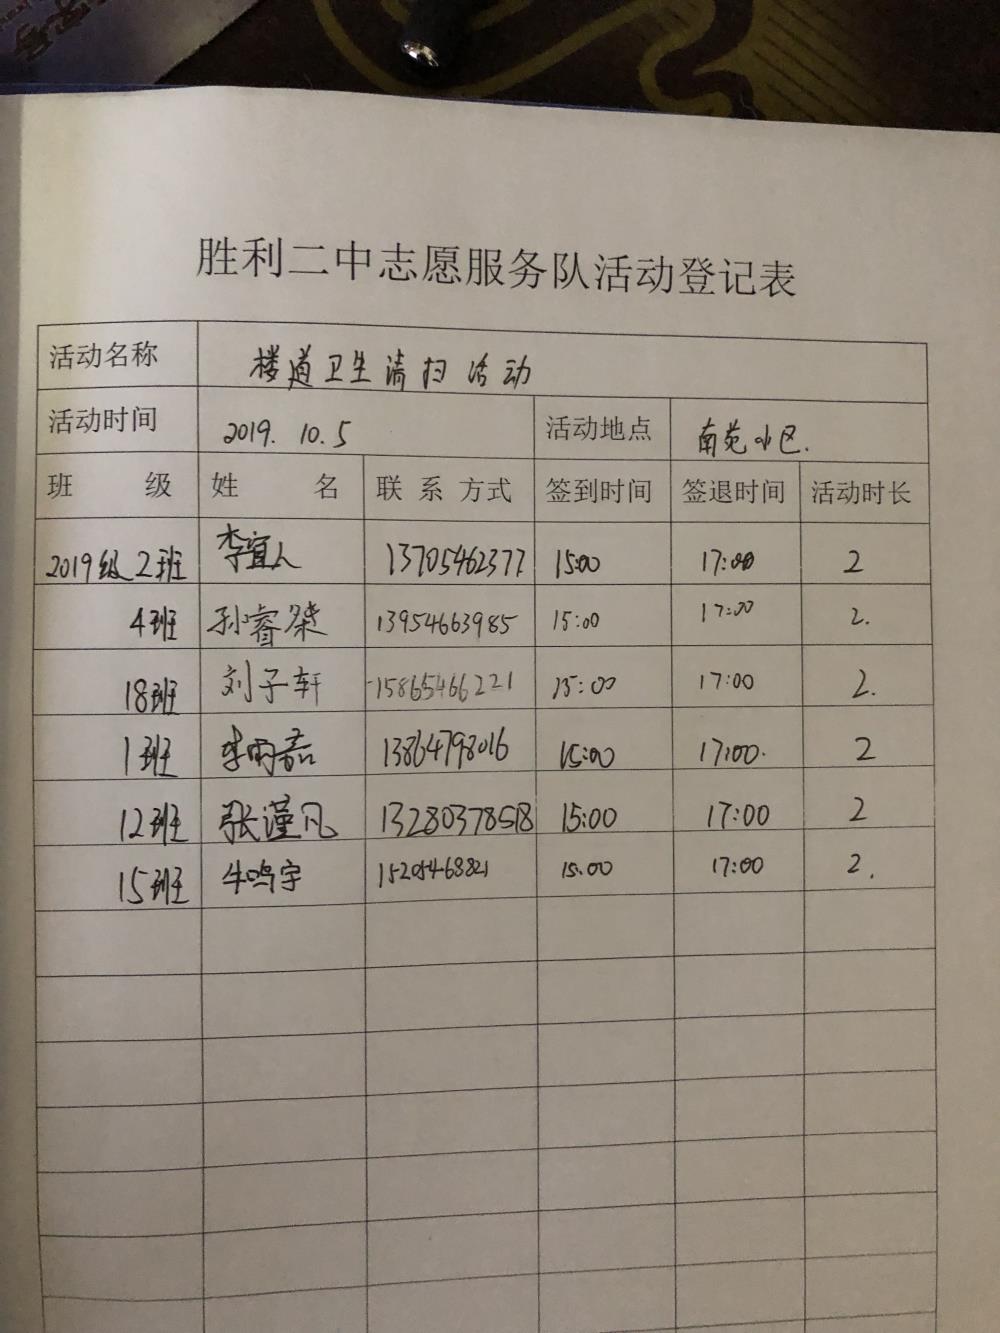 胜利二中志愿服务队活动登记表
活动名称 楼道卫生清扫活动
活动时间 2019.10.5 活动地点 南苑小区.
班 级 姓 名 联系方式 签到时间 签退时间 活动时长
2019级2班 李宜人 13705462377 15:00 17:00 2
4班 孙睿桀 13954663985 15:00 17:00 2.
18班 刘子轩 15865466221 15:00 17:00 2.
1班 李雨嘉 13864798016 15:00 17:00. 2
12班 张瑾凡 13280378518 15:00 17:00 2
15班 牛鸣宇 15205468821 15.00 17:00 2.